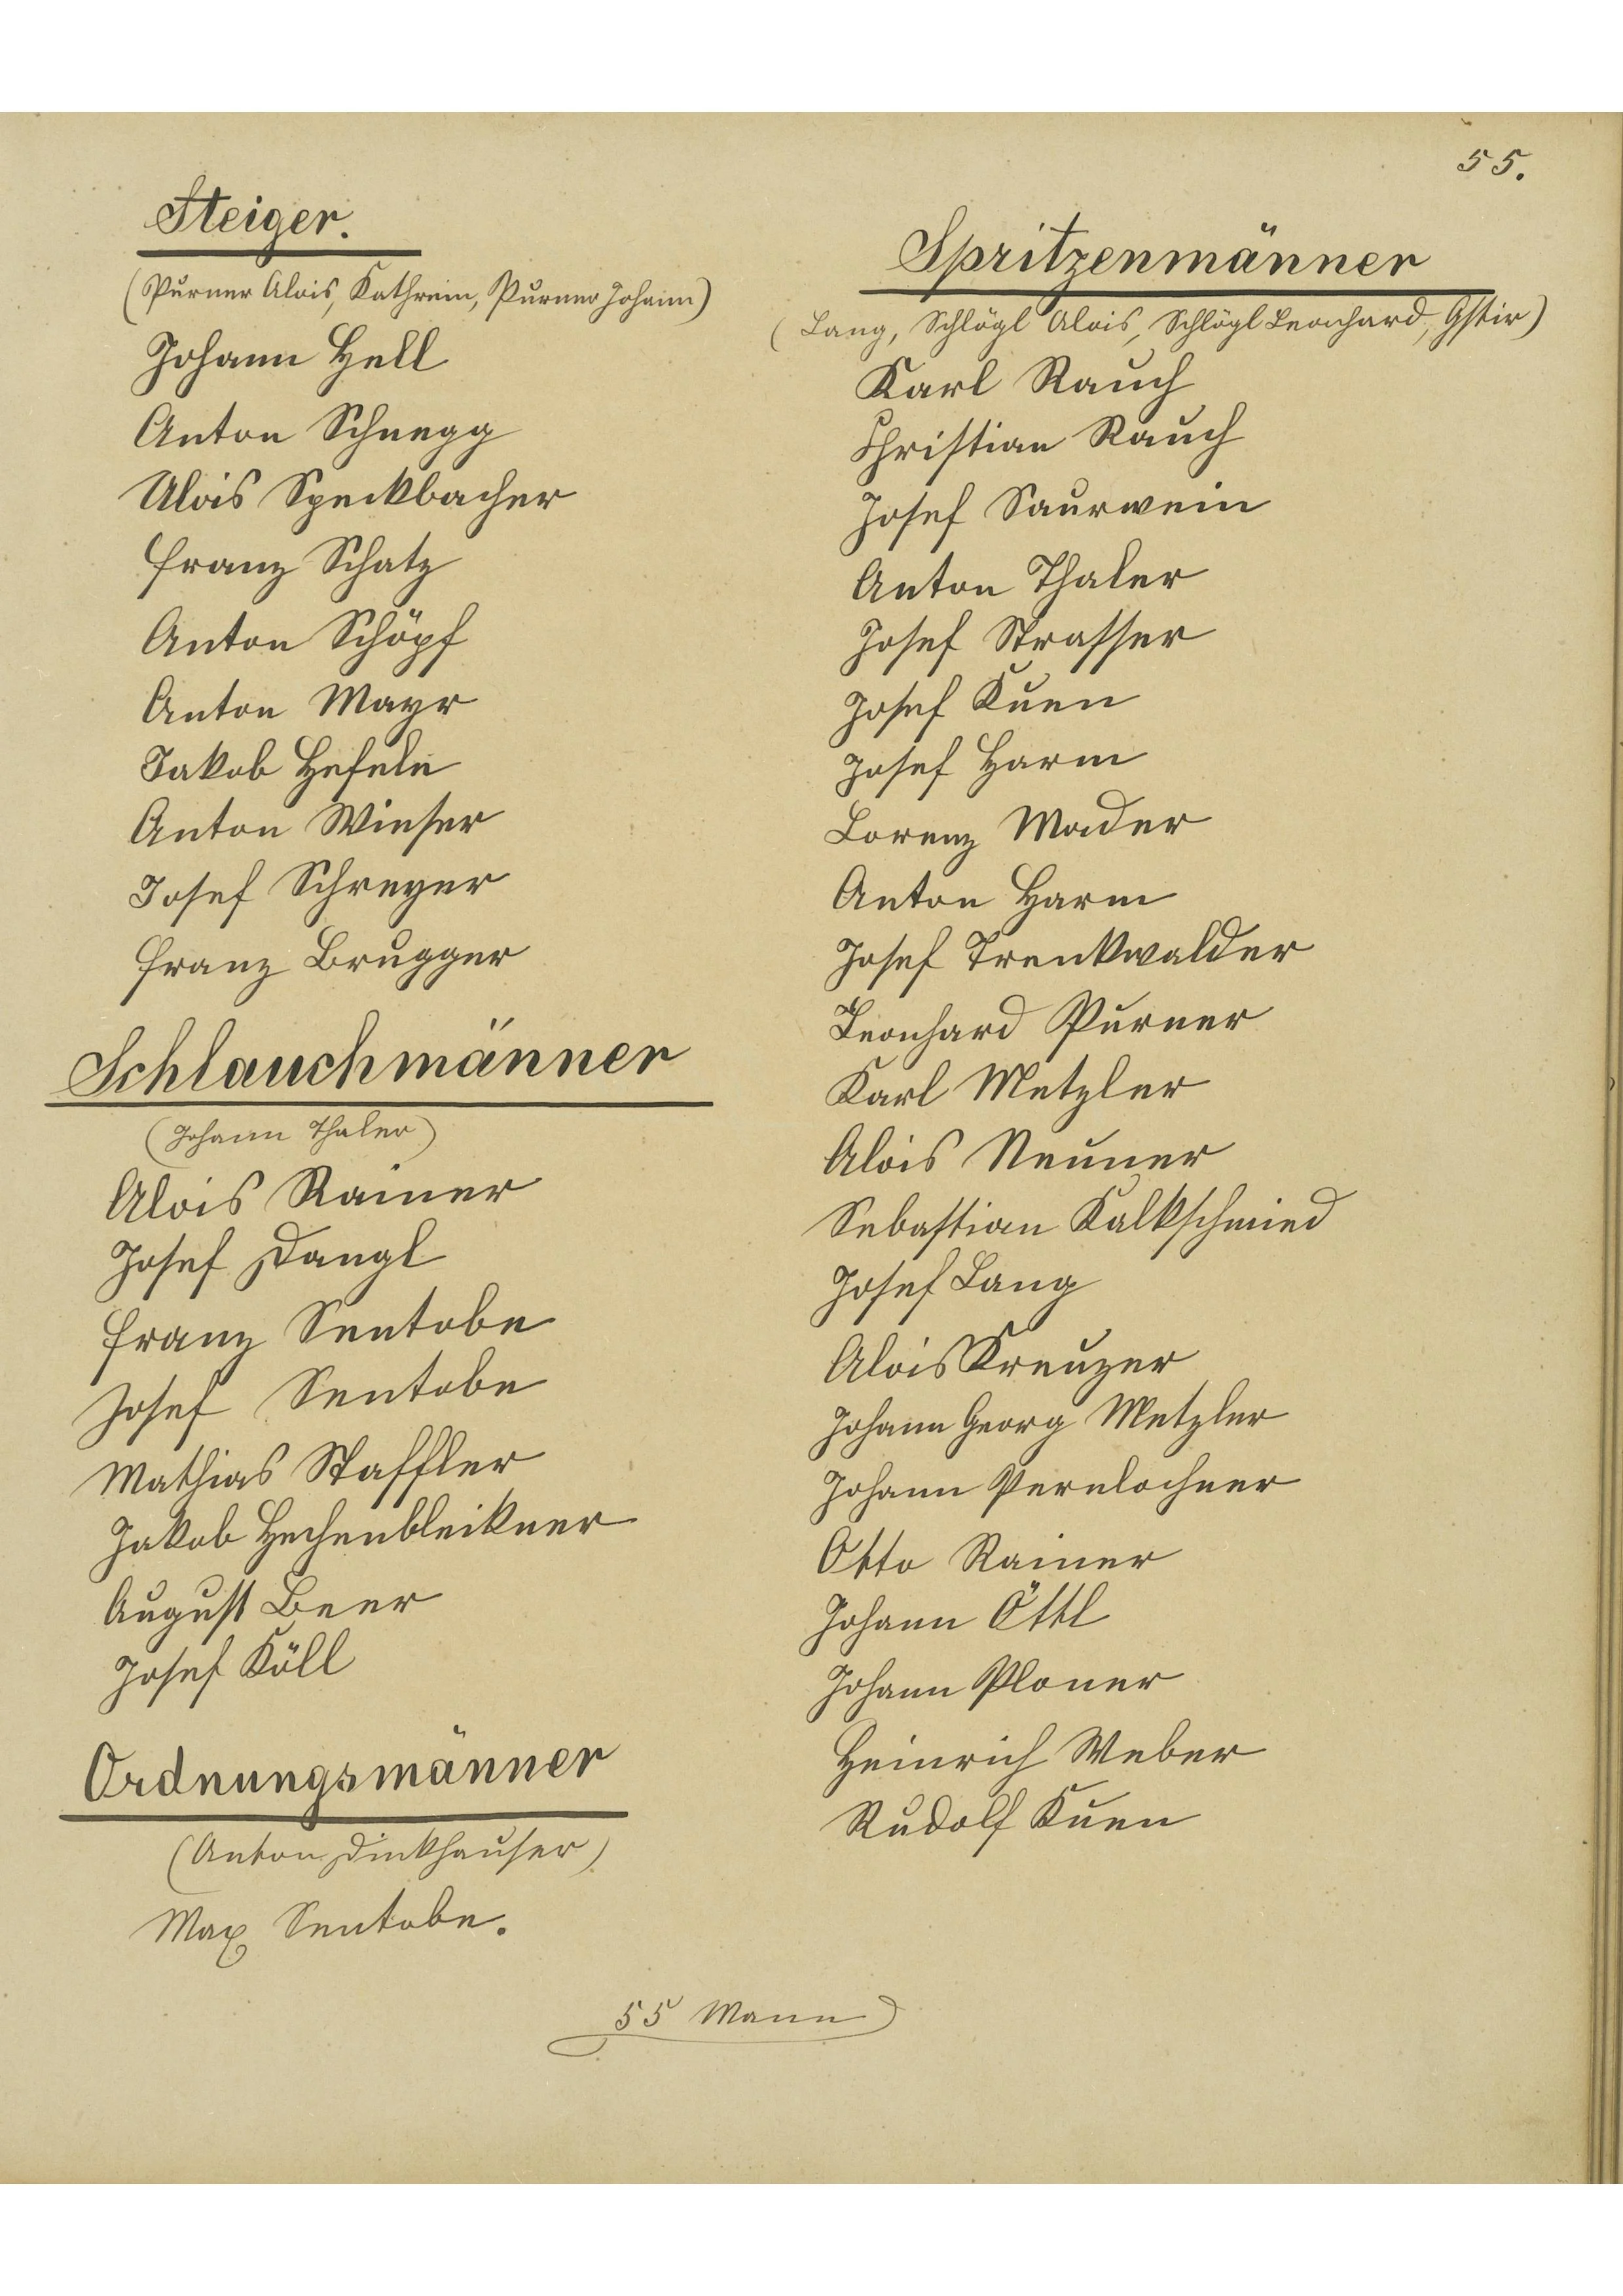 55.
Steiger.
(Purner Alois, Kathrein, Purner Johann)
Johann Hell
Anton Schnegg
Alois Speckbacher
Franz Schatz
Anton Schöpf
Anton Mayr
Jakob Hefele
Anton Winser
Josef Schreyer
Franz Brugger
Schlauchmänner
(Johann Thaler)
Alois Rainer
Josef Dangl
Franz Sentobe
Josef Sentobe
Mathias Staffler
Jakob Hechenbleikner
August Beer
Josef Köll
Ordnungsmänner
(Anton Dinkhauser)
Max Sentobe.
Spritzenmänner
(Lang, Schlögl Alois, Schlögl Leonhard, Gstir)
Karl Rauch
Christian Rauch
Josef Saurwein
Anton Thaler
Josef Strasser
Josef Kuen
Josef Harm
Lorenz Mader
Anton Harm
Josef Trenkwalder
Leonhard Purner
Karl Metzler
Alois Neuner
Sebastian Kalkschmied
Josef Lang
Alois Kreuzer
Johann Georg Metzler
Johann Pernlochner
Otto Rainer
Johann Öttl
Johann Ploner
Heinrich Weber
Rudolf Kuen
55 Mann